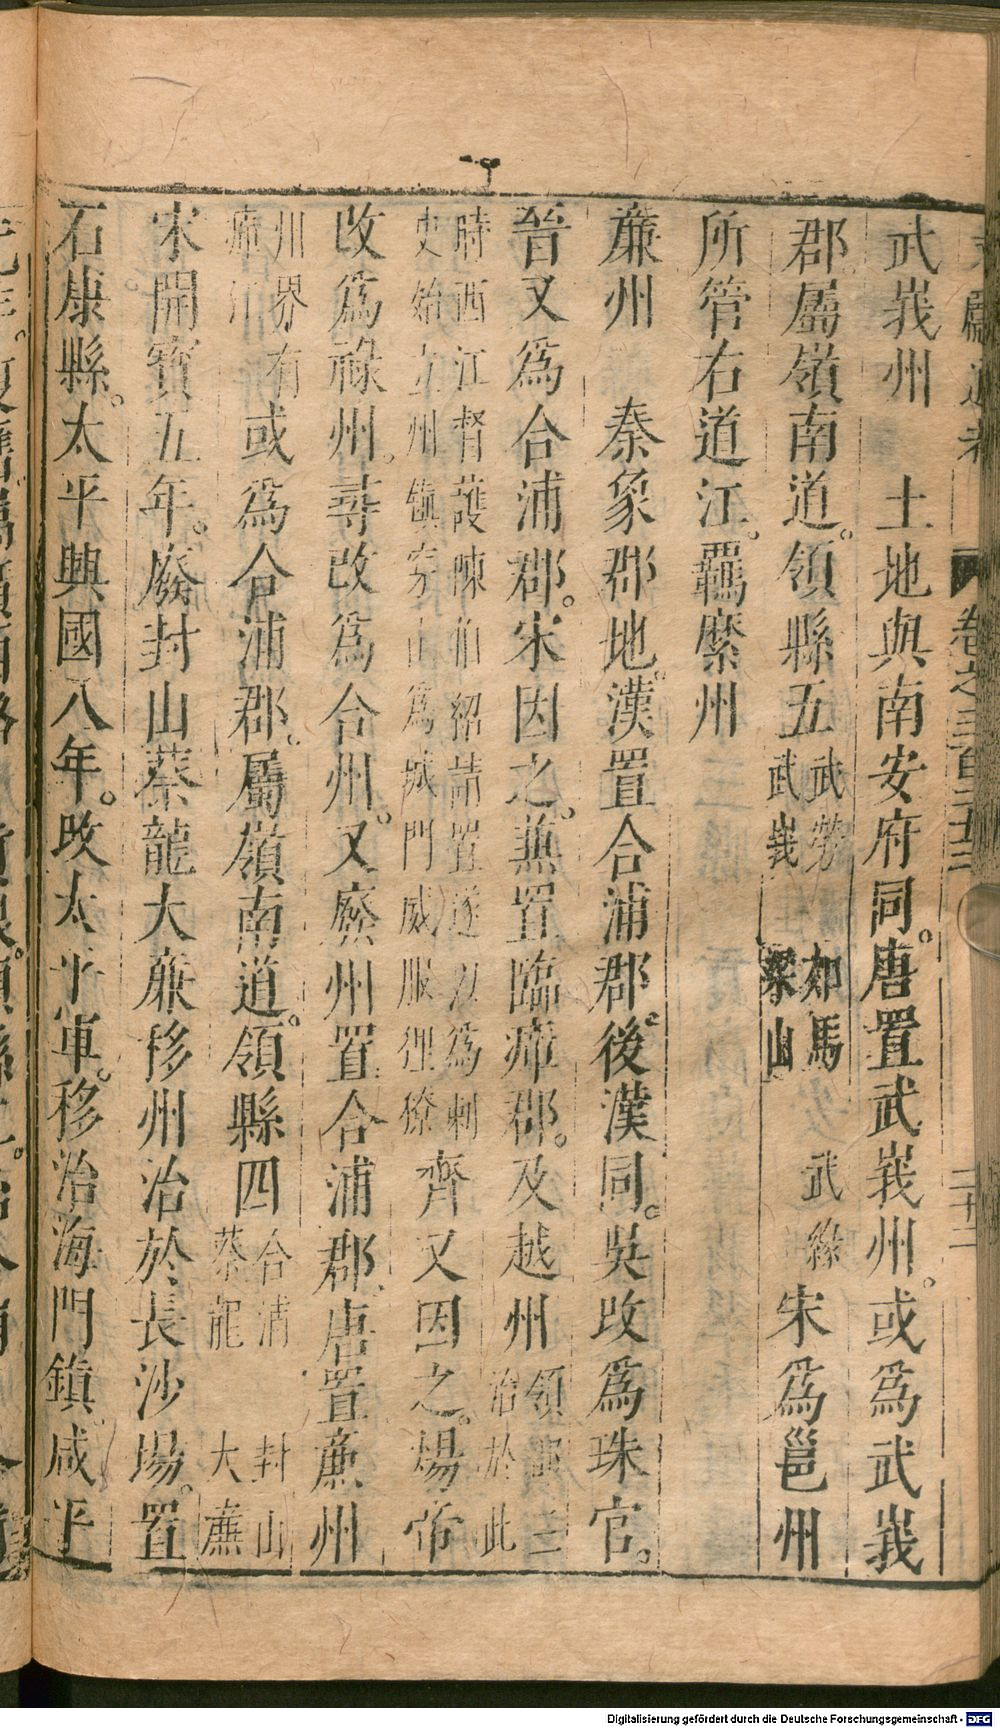 卷之三百二十三
二十二
武峩州　土地與南安府同。唐置武峩州。或爲武峩
郡屬嶺南道。領縣五武勞　如馬　武緣武峩　梁山宋爲邕州
所管右道江。羈縻州
亷州　秦象郡地。漢置合浦郡。後漢同。吳改爲珠官。
晉又爲合浦郡。宋因之。兼置臨瘴郡。及越州領郡三治於此
時西江督護陳伯紹請置遂以爲刺史始立州鎮穿山爲城門威服俚獠齊又因之。煬帝
改爲祿州。尋改爲合州。又廢州置合浦郡。唐置亷州
州界有瘴江或爲合浦郡。屬嶺南道。領縣四合浦　封山蔡龍　大亷
宋開寶五年。廢封山蔡龍大亷移州治於長沙場。置
石康縣。太平興國八年。改太平軍。移治海門鎮。咸平
Digitalisierung gefördert durch die Deutsche Forschungsgemeinschaft - DFG